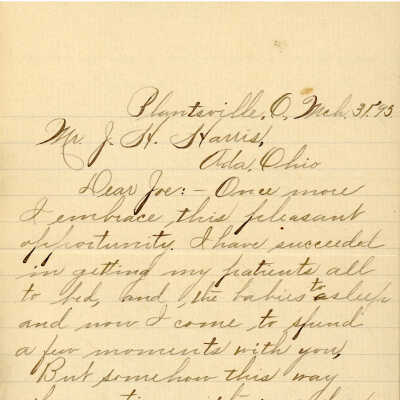 Plyntsville, O, Mch. 31 '93
Mr. J. H. Harris,
Ada, Ohio
Dear Joe: – Once more
I embrace this pleasant
opportunity. I have succeeded
in getting my patients all
to bed, and the babies to asleep
and now I come to spend
a few moments with you,
But somehow this way